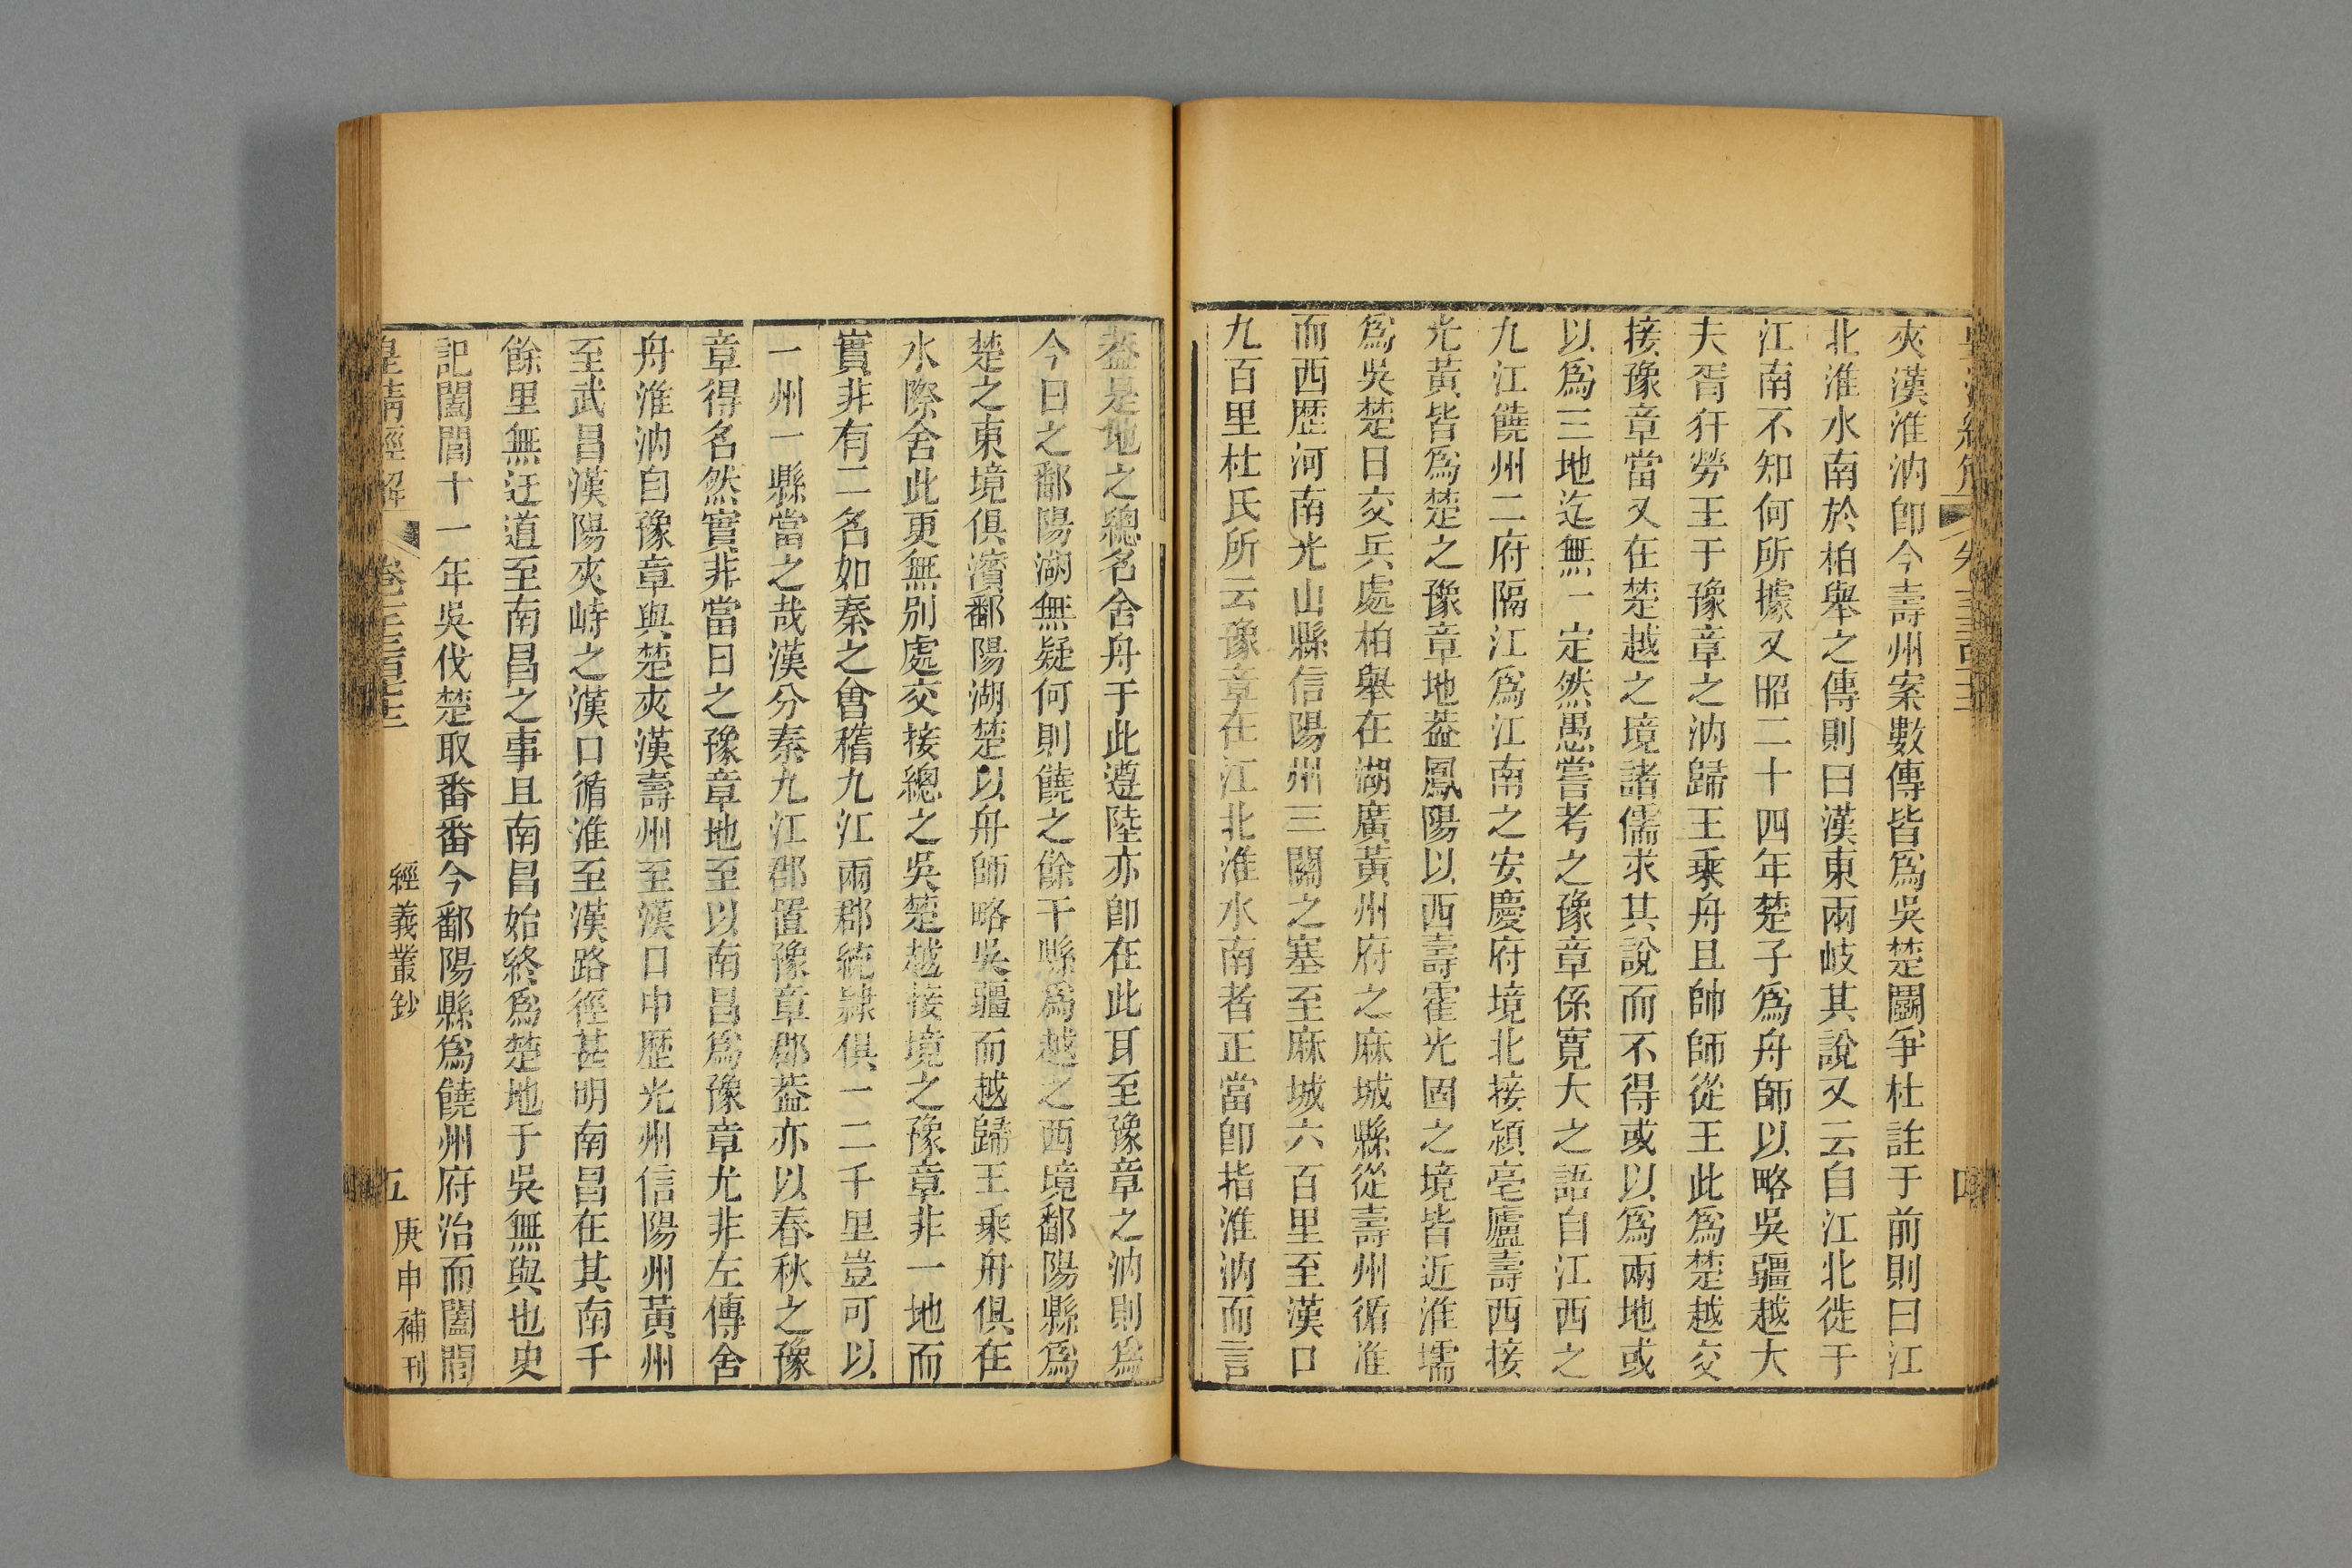 夾漢淮汭卽今壽州案數傳皆爲吳楚鬭爭杜註于前則曰江
北淮水南於柏舉之傳則曰漢東兩岐其說又云自江北徙于
江南不知何所據又昭二十四年楚子爲舟師以略吳疆越大
夫胥犴勞王于豫章之汭歸王乘舟且帥師從王此爲楚越交
接豫章當又在楚越之境諸儒求其說而不得或以爲兩地或
以爲三地迄無一定然愚嘗考之豫章係寬大之語自江西之
九江饒州二府隔江爲江南之安慶府境北接潁亳廬壽西接
光黃皆爲楚之豫章地葢鳳陽以西壽霍光固之境皆近淮壖
爲吳楚日交兵處柏舉在湖廣黃州府之麻城縣從壽州循淮
而西歷河南光山縣信陽州三關之塞至麻城六百里至漢口
九百里杜氏所云豫章在江北淮水南者正當卽指淮汭而言
葢是地之總名舍舟于此遵陸亦卽在此耳至豫章之汭則爲
今日之鄱陽湖無疑何則饒之餘干縣爲越之西境鄱陽縣爲
楚之東境俱濱鄱陽湖楚以舟師略吳疆而越歸王乘舟俱在
水際舍此更無別處交接總之吳楚越接境之豫章非一地而
實非有二名如秦之會稽九江兩郡統隸俱一二千里豈可以
一州一縣當之哉漢分秦九江郡置豫章郡葢亦以春秋之豫
章得名然實非當日之豫章地至以南昌爲豫章尤非左傳舍
舟淮汭自豫章與楚夾漢壽州至漢口中歷光州信陽州黃州
至武昌漢陽夾峙之漢口循淮至漢路徑甚明南昌在其南千
餘里無迂道至南昌之事且南昌始終爲楚地于吳無與也史
記闔閭十一年吳伐楚取番番今鄱陽縣爲饒州府治而闔閭
皇淸經解
經義叢鈔
五
庚申補刊